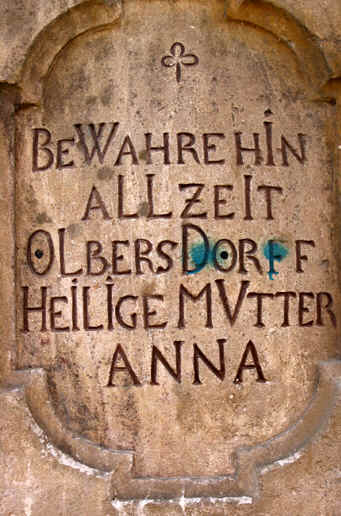 BEWAHRE HIN
ALLZEIT
OLBERSDORFF
HEILIGE MVTTER
ANNA